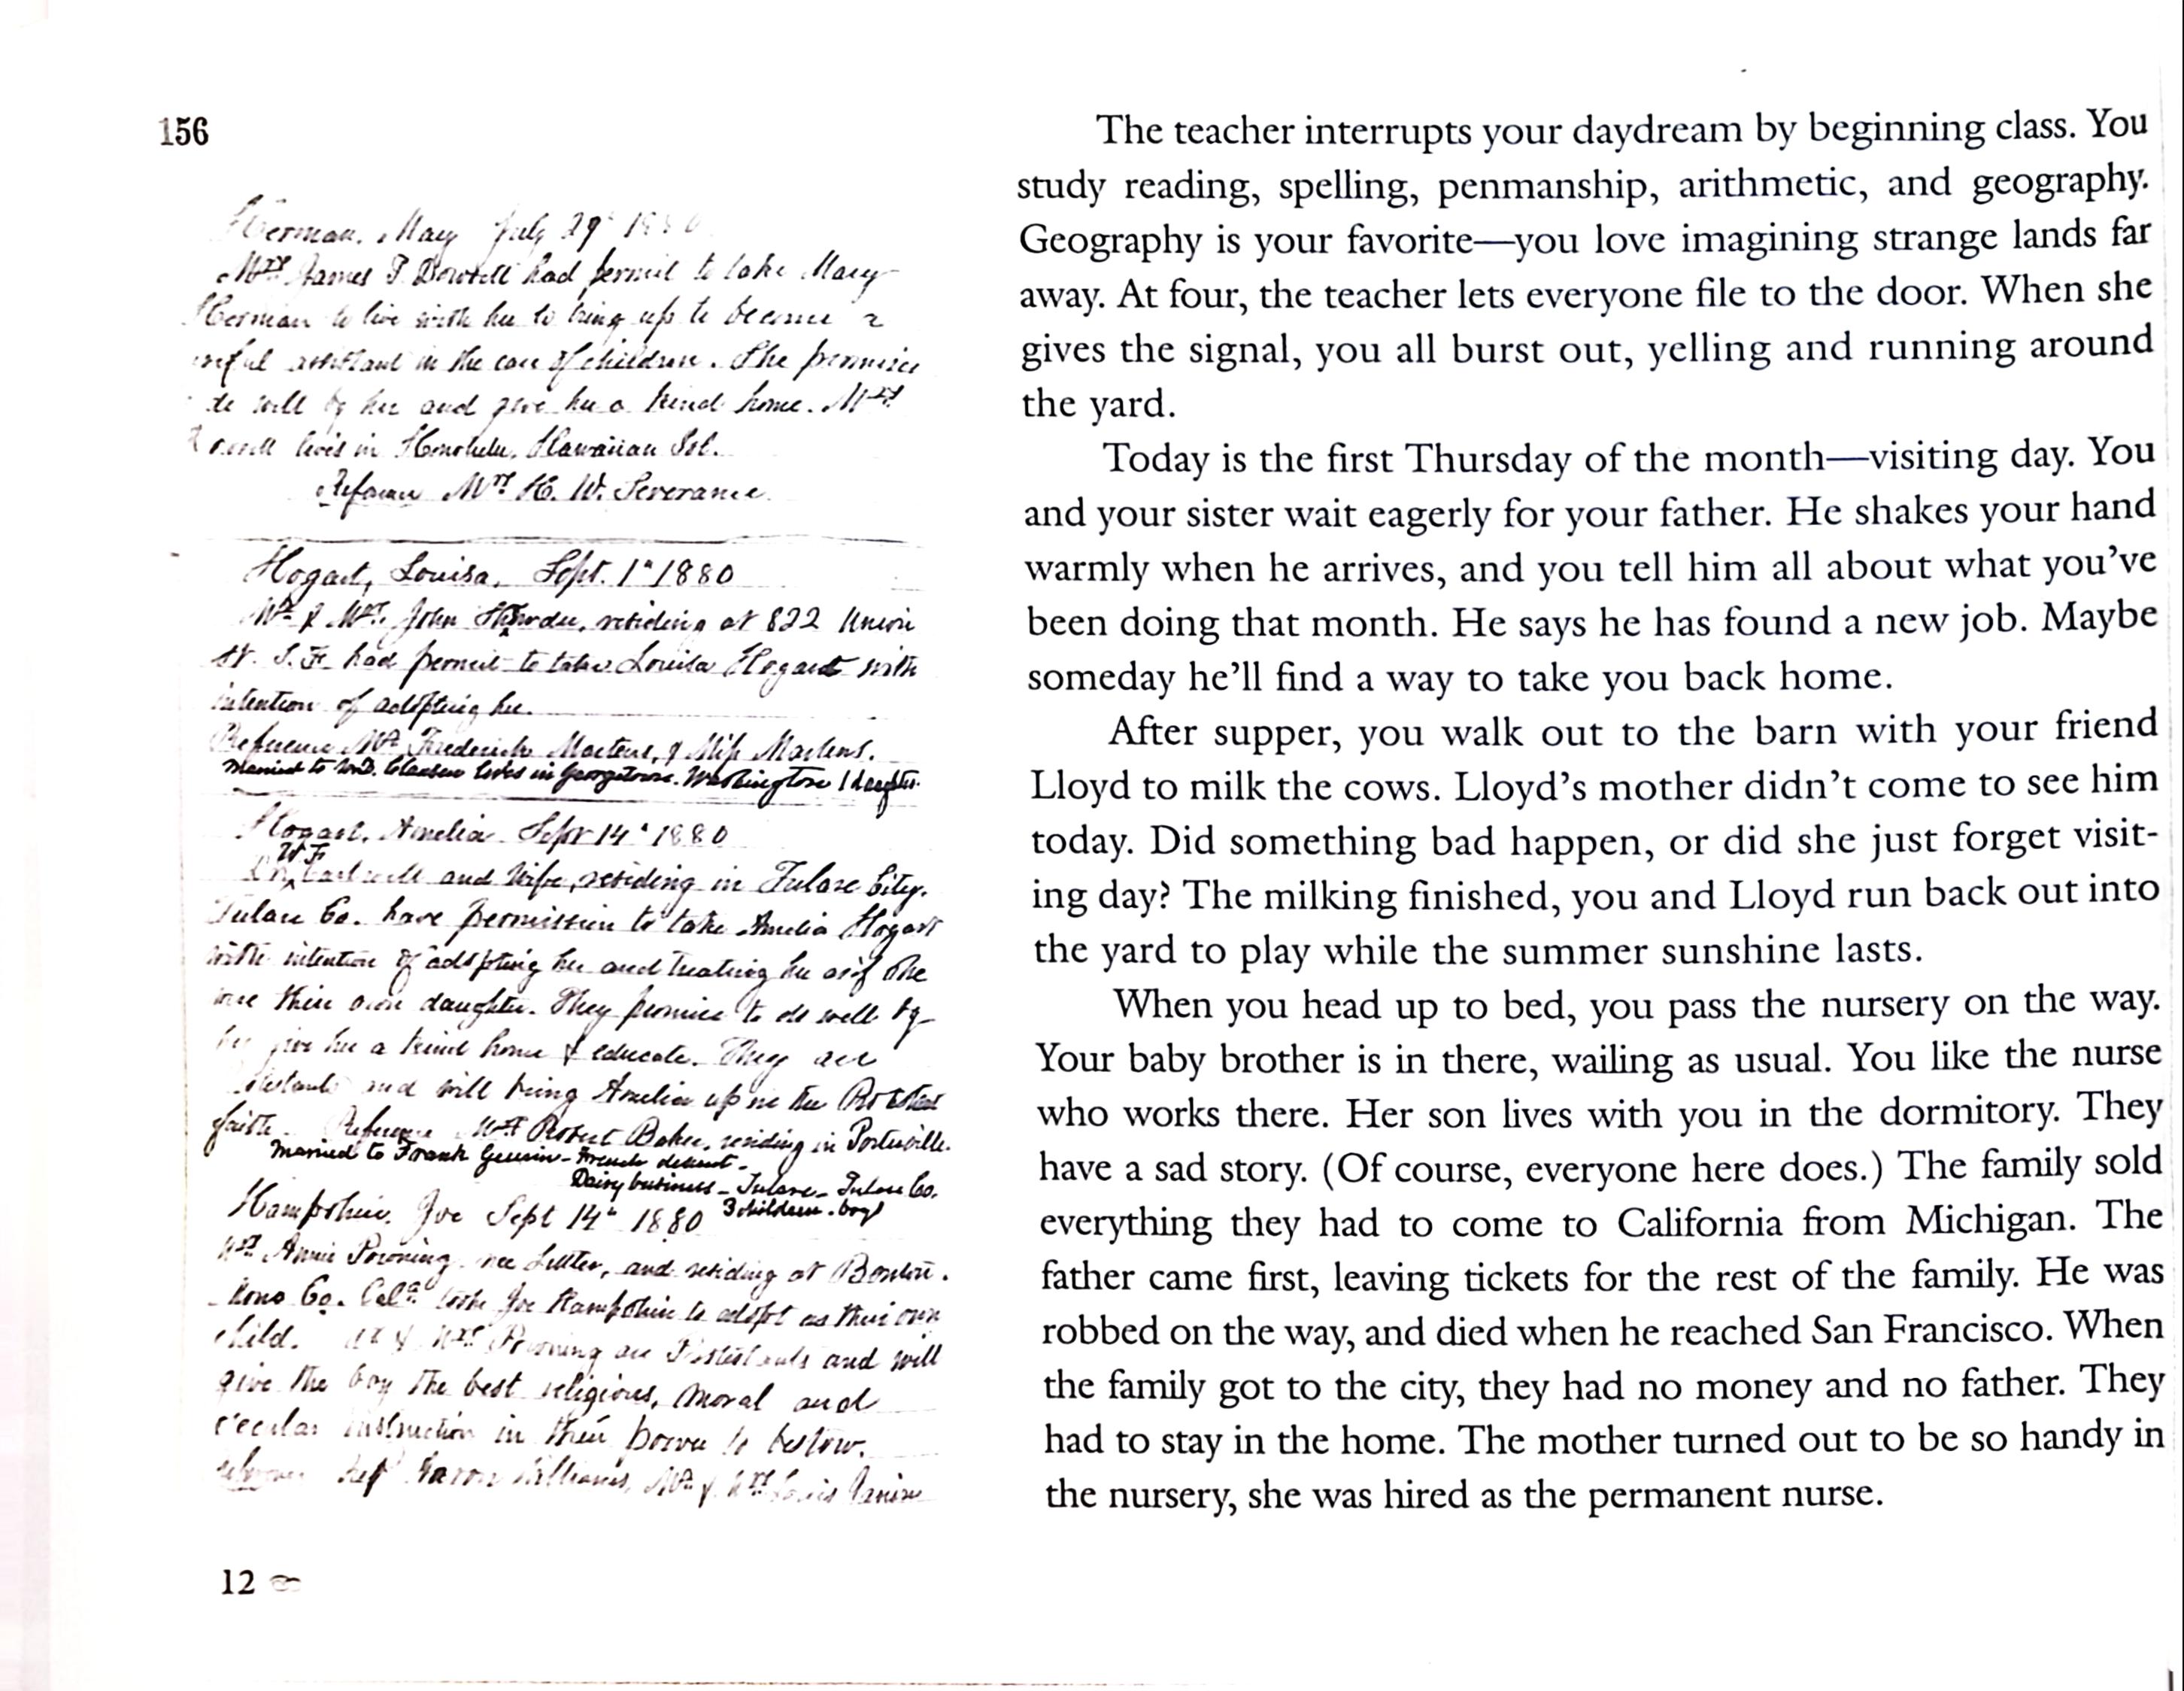 156
Herman, Mary July 29th 1880
Mrs James T. had permit to take Mary
Herman to live with her to bring up to become a
useful assistant in the care of children. She promises
to do well by her and give her a kind home. Mrs
lives in Honolulu, Hawaiian Isl.
Reference Mrs H. W. Severance.
Hogart, Louisa, Sept. 1st 1880
Mr & Mrs. John residing at 822 Union
St. S. F. had permit to take Louisa Hogart with
intention of adopting her.
Reference Mr Frederick Martens, & Miss Martens.
Married to Wm. Clausen lives in Georgetown. Washington 1 daughter.
Hogart, Amelia Sept 14th 1880
W F
and Wife, residing in Tulare City.
Tulare Co. have permission to take Amelia Hogart
with intention of adopting her and treating her as if she
were their own daughter. They promise to do well by
her give her a kind home & educate. They are
Protestants and will bring Amelia up in the Protestant
faith. Reference Mrs Robert Baker, residing in Porterville.
Married to Frank - French descent -
Dairy business - Tulare - Tulare Co.
3 children - boys
Hampshire, Joe Sept 14th 1880
Mrs Annie nee and residing at
Mono Co. Cala. took Joe Hampshire to adopt as their own
child. Mr & Mrs are Protestants and will
give the boy the best religious, moral and
secular instruction in their power to bestow.
Reference Williams, Mr & Mrs Louis
12
The teacher interrupts your daydream by beginning class. You
study reading, spelling, penmanship, arithmetic, and geography.
Geography is your favorite—you love imagining strange lands far
away. At four, the teacher lets everyone file to the door. When she
gives the signal, you all burst out, yelling and running around
the yard.
Today is the first Thursday of the month—visiting day. You
and your sister wait eagerly for your father. He shakes your hand
warmly when he arrives, and you tell him all about what you've
been doing that month. He says he has found a new job. Maybe
someday he'll find a way to take you back home.
After supper, you walk out to the barn with your friend
Lloyd to milk the cows. Lloyd's mother didn't come to see him
today. Did something bad happen, or did she just forget visit-
ing day? The milking finished, you and Lloyd run back out into
the yard to play while the summer sunshine lasts.
When you head up to bed, you pass the nursery on the way.
Your baby brother is in there, wailing as usual. You like the nurse
who works there. Her son lives with you in the dormitory. They
have a sad story. (Of course, everyone here does.) The family sold
everything they had to come to California from Michigan. The
father came first, leaving tickets for the rest of the family. He was
robbed on the way, and died when he reached San Francisco. When
the family got to the city, they had no money and no father. They
had to stay in the home. The mother turned out to be so handy in
the nursery, she was hired as the permanent nurse.